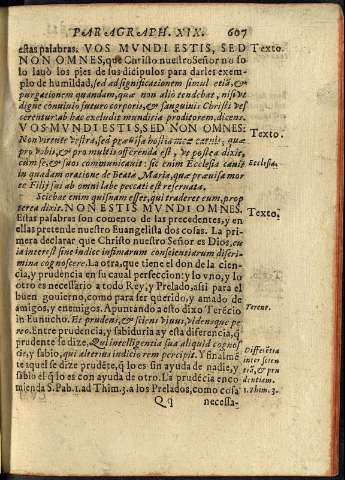 PARAGRAPH. XIX. 607
estas palabras. VOS MVNDI ESTIS, SED Texto.
NON OMNES, que Christo nuestro Señor no so
lo lauò los pies de sus dicipulos para darles exem-
plo de humildad, sed ad significationem simul etiã, &
purgationem quandam, quæ non aliò tendebat, nisi vt
digne conuiuio futuro corporis, & sanguinis Christi vef
cerentur: ab hac excludis mundicia proditorem, dicens.
VOS MVNDI ESTIS, SED NON OMNES: Texto.
Non virente vestra, sed præuisa hostia
pro vobis, & pro multis offerenda est, vt postea dixit,
cum se, & suos communicauit: sic enim Ecclesia canit Ecclesia.
in quadam oratione de Beata Maria, quæ præuisa mor
te Filij sui ab omni labe peccati est reseruata.
Sciebat enim quisnam esset, qui traderet eum, prop
terea dixit. NON ESTIS MVNDI OMNES. Texto.
Estas palabras son conuento de las precedentes, y en
ellas pretende nuestro Euangelista dos cosas. La pri-
mera declarar que Christo nuestro Señor es Dios, cu
ia interest sine indice infimarum conscientiarum discri-
mina cognoscere. La otra, que tiene el don de la cien-
cia, y prudencia en su caual perfeccion: y lo vno, y lo
otro es necessario a todo Rey, y Prelado, assi para el
buen gouierno, como para ser querido, y amado de
amigos, y enemigos. Apuntando a esto dixo Terẽcio Terent.
in Eunucho. Et prudens, & sciens viuus, vidensque pe-
reo. Entre prudencia, y sabiduria ay esta diferencia, q̃
prudente se dize, Qui intelligentia sua aliquid cognos- Differẽtia
cit, y sabio, qui alterius indicio rem percipit. Y finalmẽ inter scien
te aquel se dize prudẽte, q̃ lo es sin ayuda de nadie, y tiã, & pru
sabio el q̃ lo es con ayuda de otro. La prudẽcia enco- dentiam.
mienda S. Pab. 1. ad Thim. 3. a los Prelados, como cosa 1. Thim. 3.
Qq necessa-